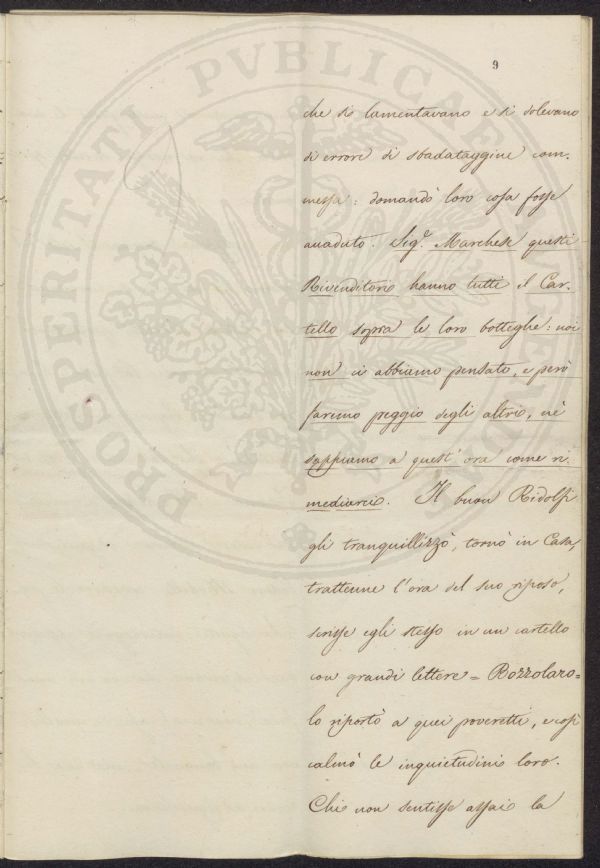 9
che si lamentavano e si dolevano
di errore di sbadataggine com-
messa: domandò loro cosa fosse
accaduto. Sig.e Marchese questi
Rivenditori hanno tutti il Car-
tello sopra le loro botteghe: noi
non ci abbiamo pensato, e però
faremo peggio degli altri, nè
sappiamo a quest'ora come ri-
mediarci. Il buon Ridolfi
gli tranquillizzò, tornò in Casa,
trattenne l'ora del suo riposo,
scrisse egli stesso in un cartello
con grandi lettere = Bozzolaro =
lo riportò a quei poveretti, e così
calmò le inquietudini loro.
Chi non sentisse assai la
PROSPERITATI PVBLICAE